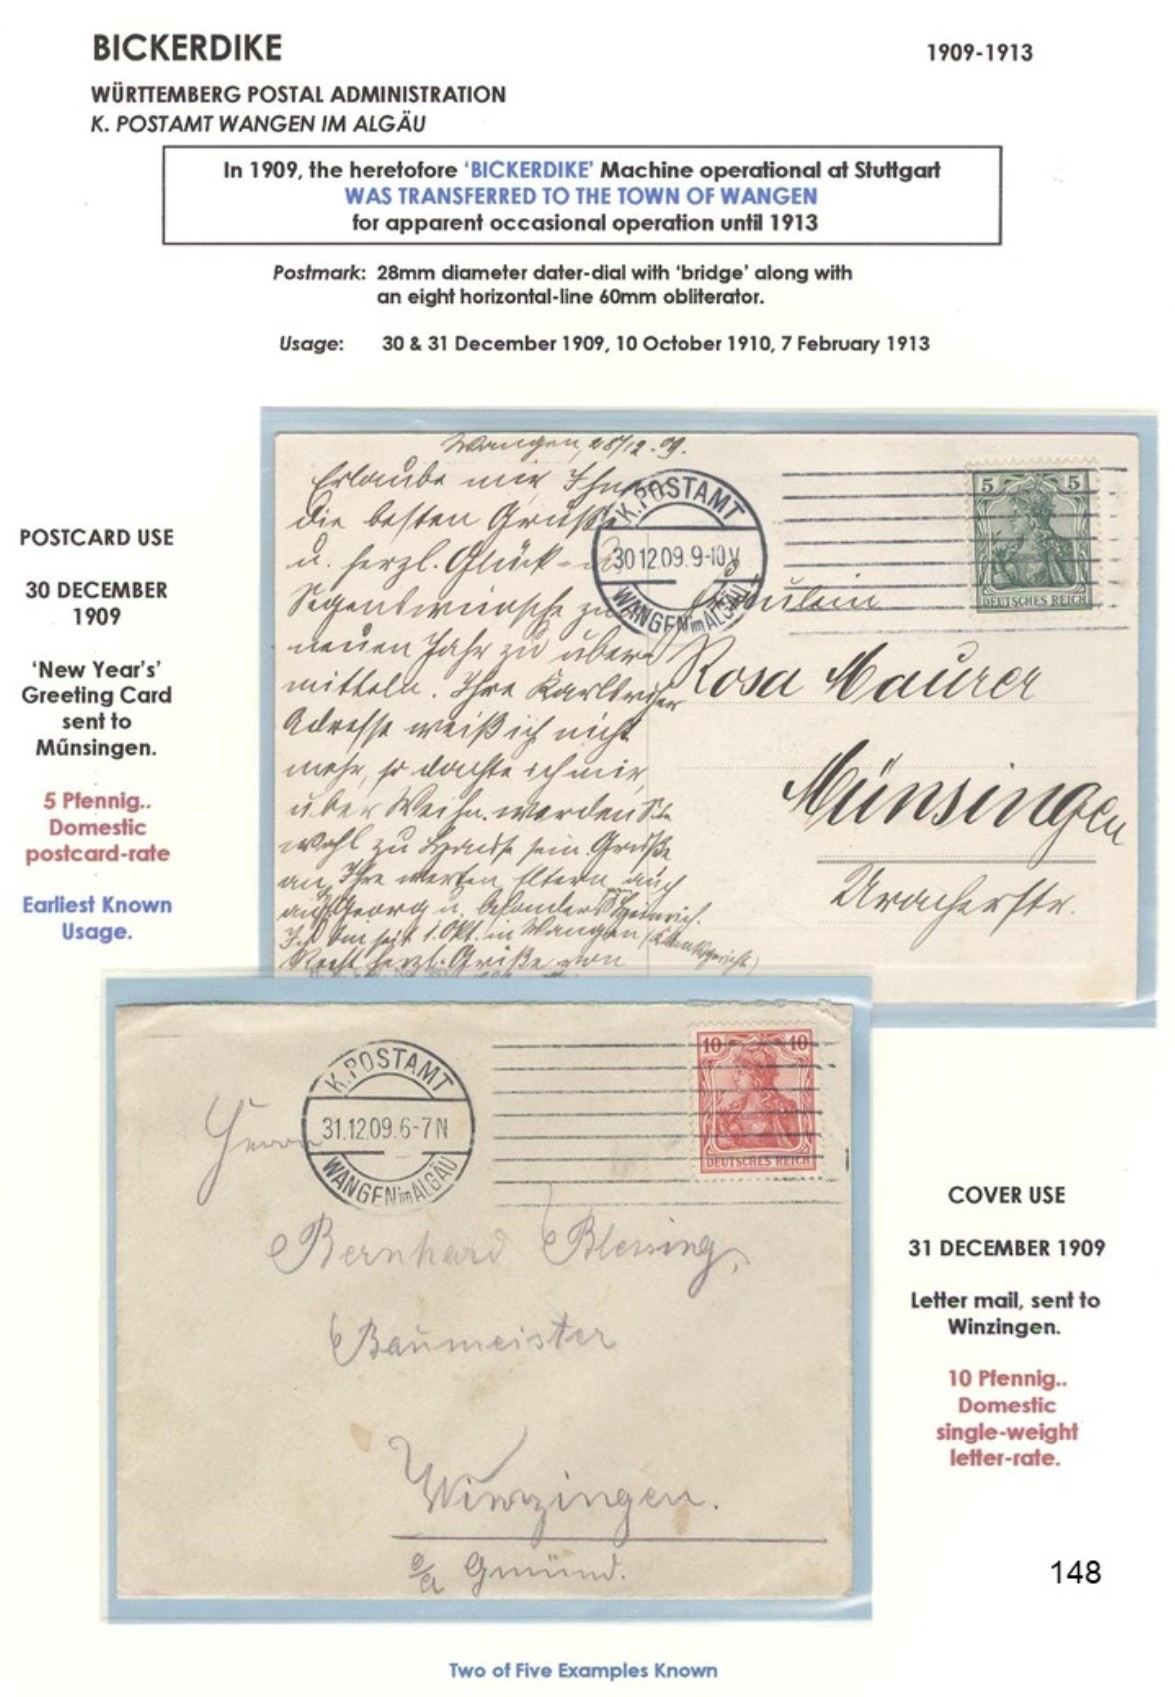 BICKERDIKE
1909-1913
WÜRTTEMBERG POSTAL ADMINISTRATION
K. POSTAMT WANGEN IM ALGÄU
In 1909, the heretofore ‘BICKERDIKE’ Machine operational at Stuttgart
WAS TRANSFERRED TO THE TOWN OF WANGEN
for apparent occasional operation until 1913
Postmark: 28mm diameter dater-dial with ‘bridge’ along with
an eight horizontal-line 60mm obliterator.
Usage: 30 & 31 December 1909, 10 October 1910, 7 February 1913
POSTCARD USE
30 DECEMBER
1909
‘New Year’s’
Greeting Card
sent to
Műnsingen.
5 Pfennig..
Domestic
postcard-rate
Earliest Known
Usage.
Wangen, 28/12.09.
Erlaube mir Ihnen
die besten Grüße
u. herzl. Glück- u.
Segenswünsche zum
neuen Jahr zu über-
mitteln. Ihre Karlsruher
Adresse weiß ich nicht
mehr, so dachte ich mir,
über Weihn. werden Sie
wohl zu Hause sein. Grüße
an Ihre werten Eltern auch
an Georg u. besonders Heinrich.
Ich bin seit 1. Okt. in Wangen
Recht herzl. Grüße von
K. POSTAMT
30 12.09. 9-10 V
WANGEN im ALGÄU
5 5
DEUTSCHES REICH
Fräulein
Rosa Maurer
Münsingen
Uracherstr.
K. POSTAMT
31.12.09. 6-7 N
WANGEN im ALGÄU
10 10
DEUTSCHES REICH
Herrn
Bernhard Blessing,
Baumeister
Winzingen.
o/a Gmünd.
COVER USE
31 DECEMBER 1909
Letter mail, sent to
Winzingen.
10 Pfennig..
Domestic
single-weight
letter-rate.
148
Two of Five Examples Known